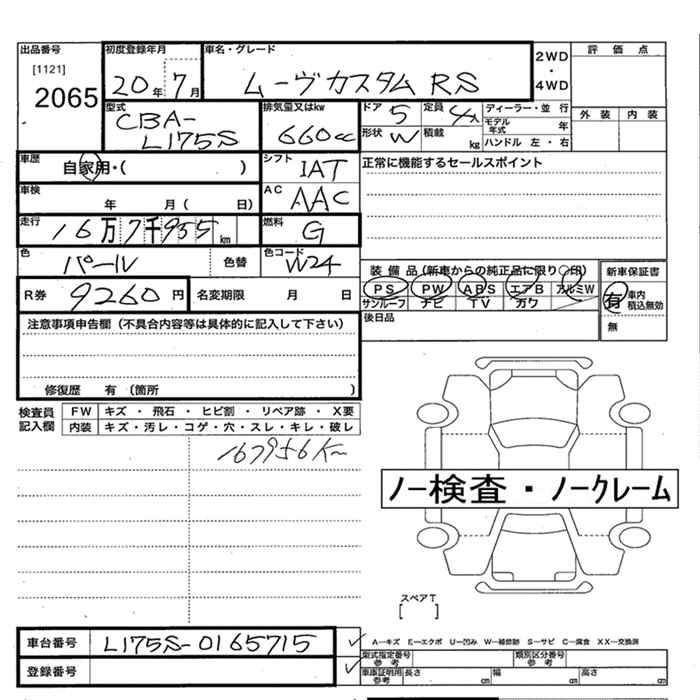 出品番号 初度登録年月 車名・グレード 2WD ・ 4WD 評価点
[1121]
2065 20年 7月 ムーヴカスタム RS 外装 内装
型式 CBA-L175S 排気量又はkw 660cc ドア 5 定員 4人 ディーラー・並行
形状 W 積載 kg モデル年式 年 ハンドル 左・右
車歴 自家用・( ) シフト IAT 正常に機能するセールスポイント
車検 年 月( 日) AC AAC
走行 16万7千955km 燃料 G
色 パール 色替 色コード W24
装備品(新車からの純正品に限り○印) 新車保証書
R券 9260円 名変期限 月 日 PS PW ABS エアB アルミW 有 車内積込無効
サンルーフ ナビ TV カワ 無
注意事項申告欄(不具合内容等は具体的に記入して下さい) 後日品
修復歴 有(箇所 )
検査員記入欄 FW キズ・飛石・ヒビ割・リペア跡・X要
内装 キズ・汚レ・コゲ・穴・スレ・キレ・破レ
167956K
ノー検査・ノークレーム
スペアT
[ ]
車台番号 L175S-0165715 A-キズ E-エクボ U-凹み W-補修跡 S-サビ C-腐食 XX-交換済
型式指定番号 参考 類別区分番号 参考
登録番号 車庫証明用 参考 長さ cm 幅 cm 高さ cm